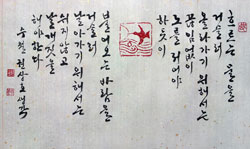 흐르는 물을
거슬러
올라가기 위해서는
끊임없이
노를 저어야
하듯이
불어오는 바람을
거슬러
날아가기 위해서는
쉬지 않고
날갯짓을
해야 한다